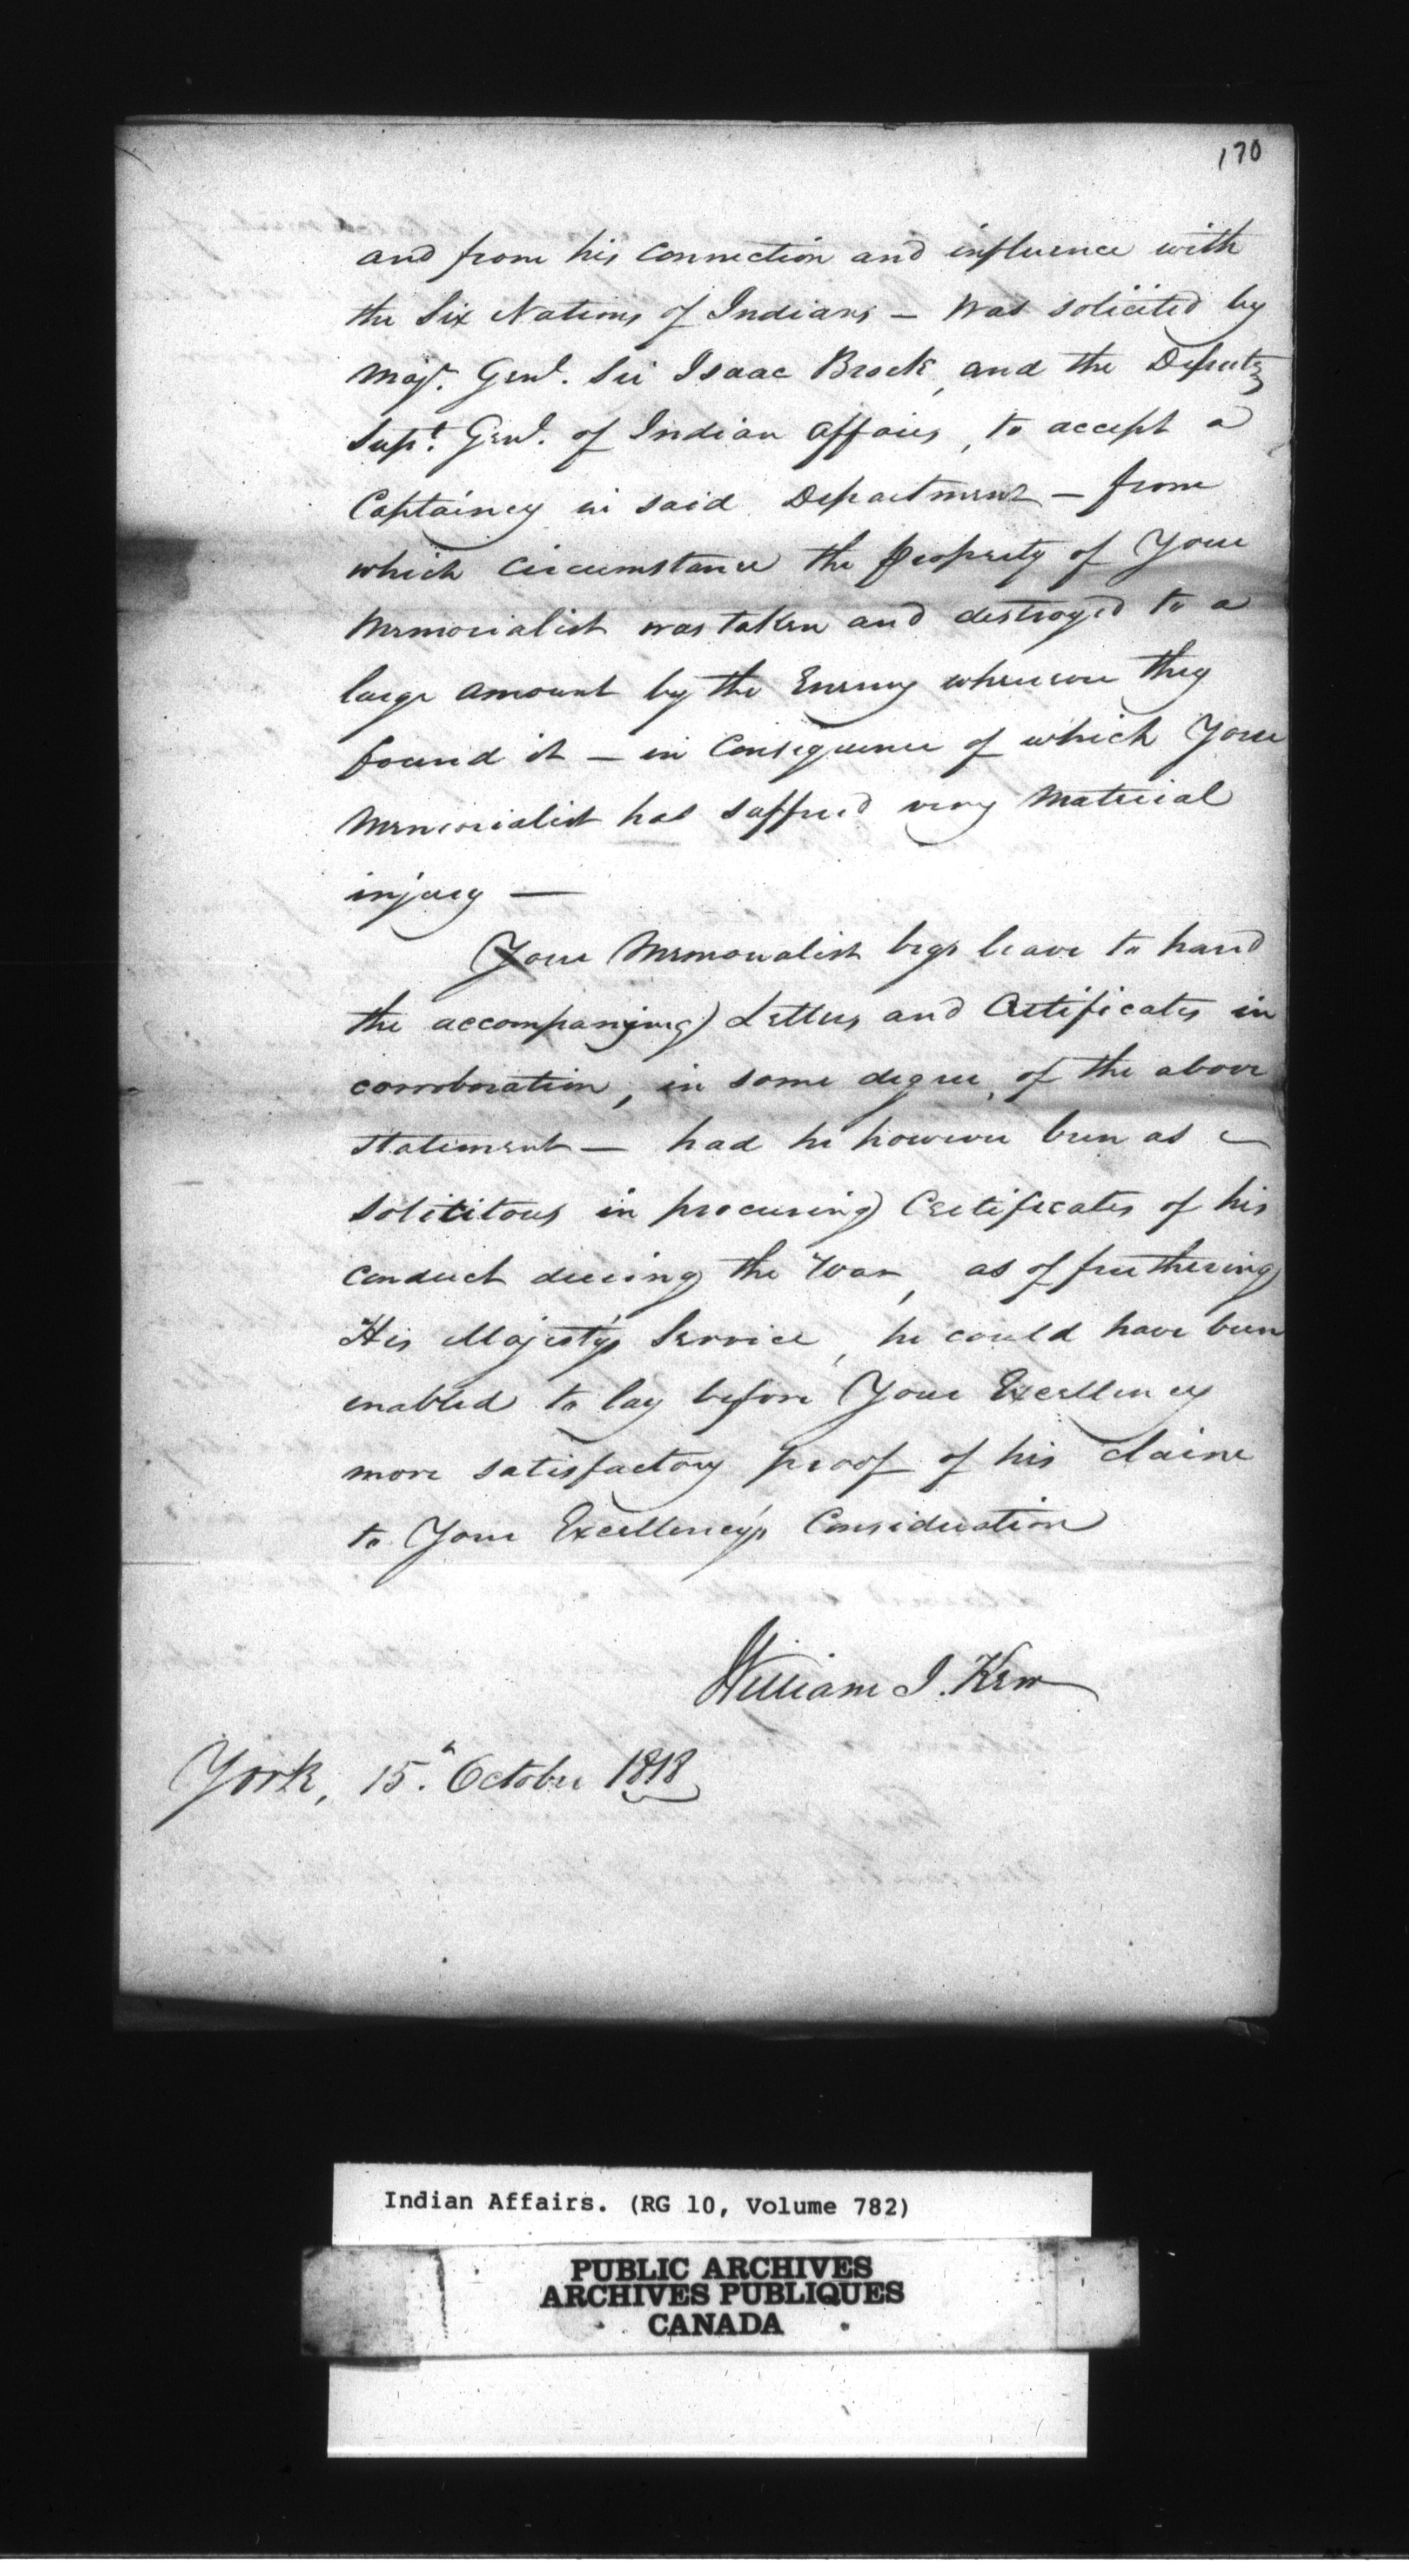 170
and from his Connection and influence with
the Six Nations of Indians – was solicited by
Majr. Genl. Sir Isaac Brock, and the Deputy
Supt. Genl. of Indian Affairs, to accept a
Captaincy in said Department – from
which Circumstance the property of Your
Memorialist was taken and destroyed to a
large amount by the Enemy wherever they
found it – in Consequence of which Your
Memorialist has suffered very Material
injury –
Your Memorialist begs leave to hand
the accompanying Letters and Certificates in
corroboration, in some degree, of the above
statement – had he however been as
solicitous in procuring Certificates of his
conduct during the War, as of furthering
His Majesty's Service, he could have been
enabled to lay before Your Excellency
more satisfactory proof of his claim
to Your Excellency's Consideration
William J. Kerr
York, 15.h October 1818
Indian Affairs. (RG 10, Volume 782)
PUBLIC ARCHIVES
ARCHIVES PUBLIQUES
CANADA